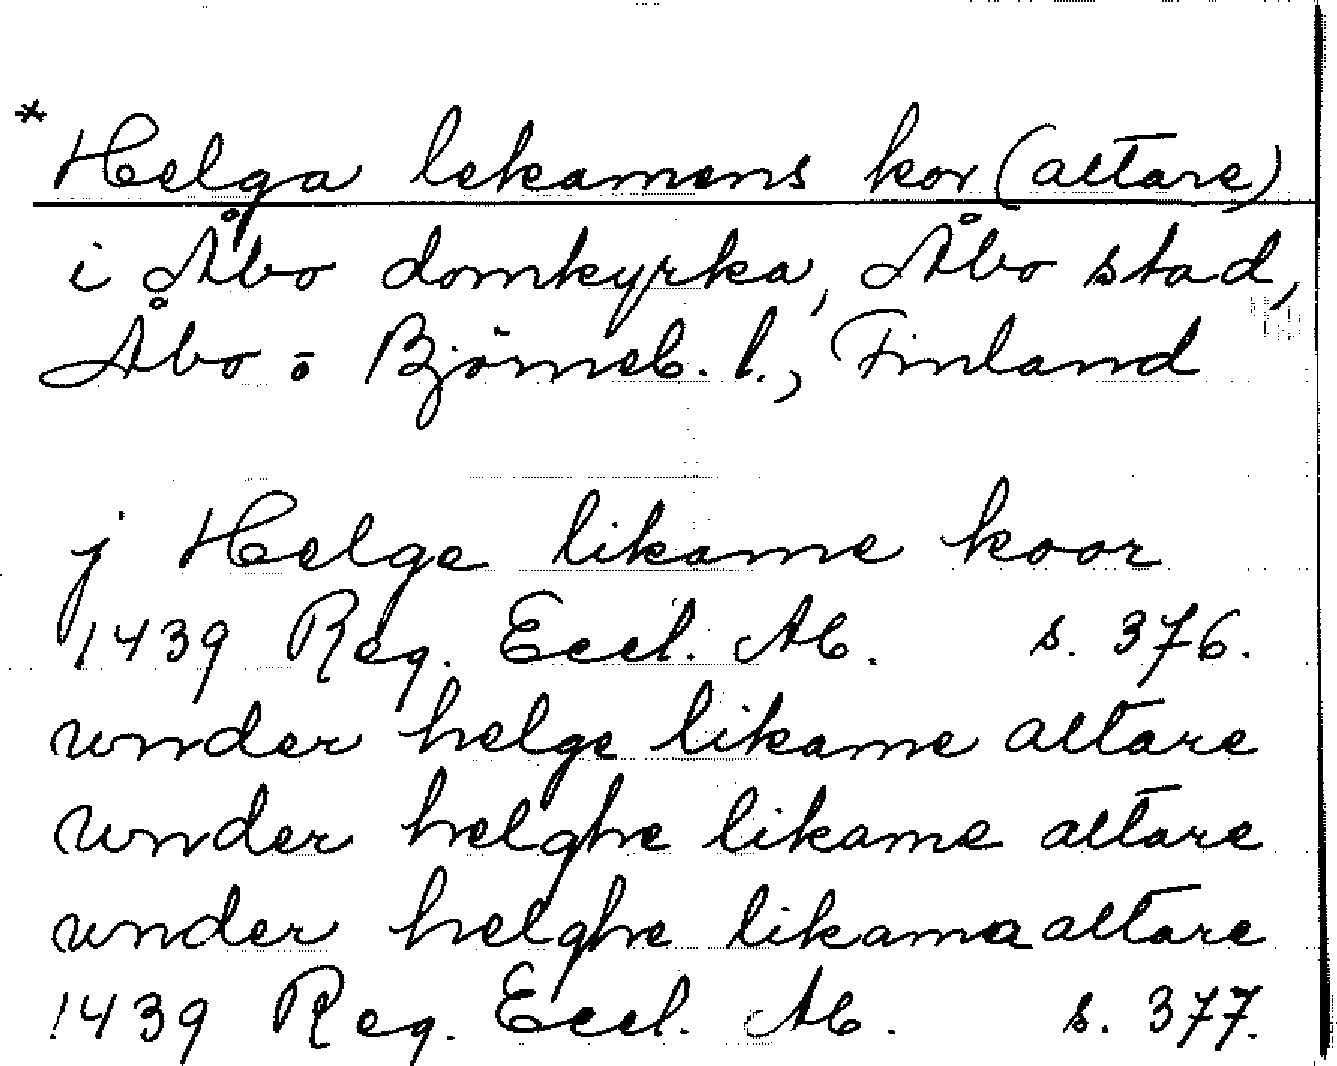 * Helga lekamens kor (altare)
i Åbo domkyrka, Åbo stad,
Åbo o Björneb. l., Finland
j Helge likame koor
1439 Reg. Eccl. Ab. s. 376.
vnder helge likame altare
vnder helghe likame altare
vnder helghe likama altare
1439 Reg. Eccl. Ab. s. 377.